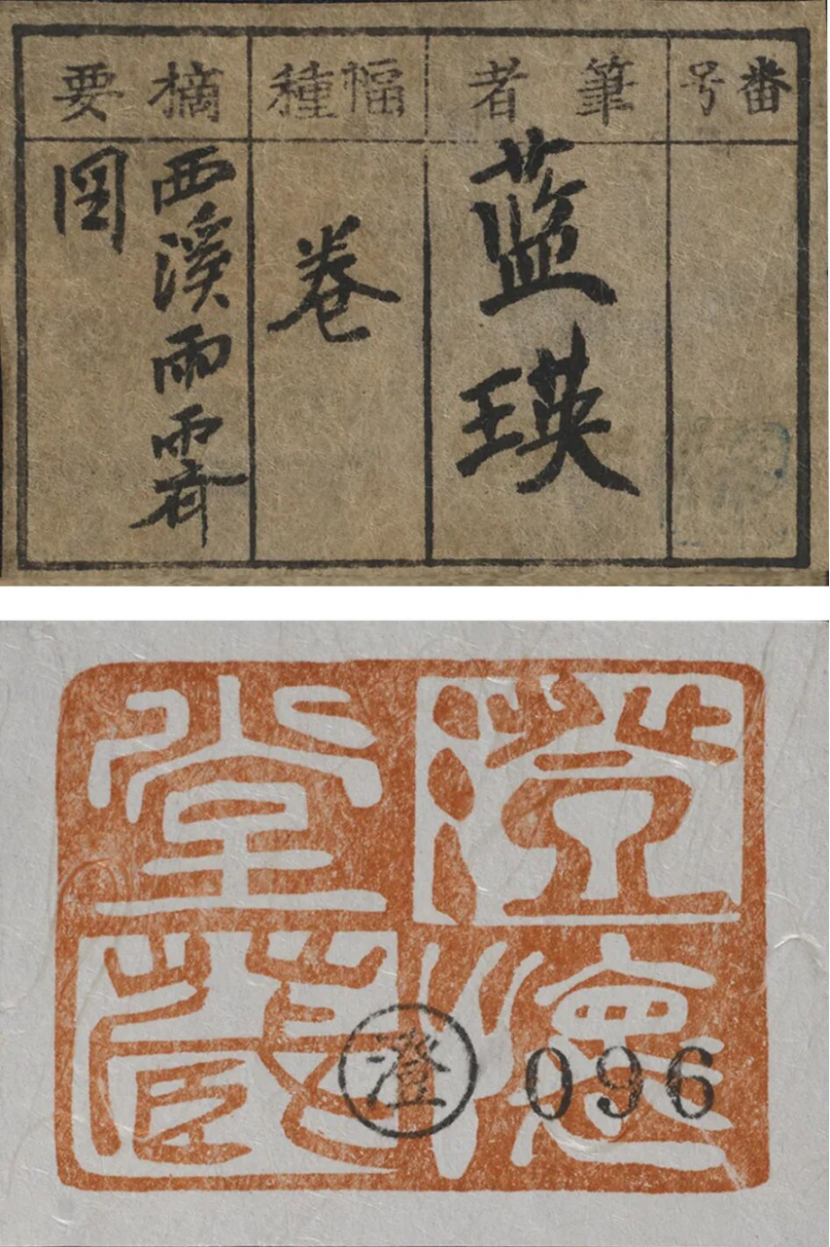 番号
筆者
蓝瑛
幅種
卷
摘要
西溪雨霁
图
澄懷
堂藏
澄 096